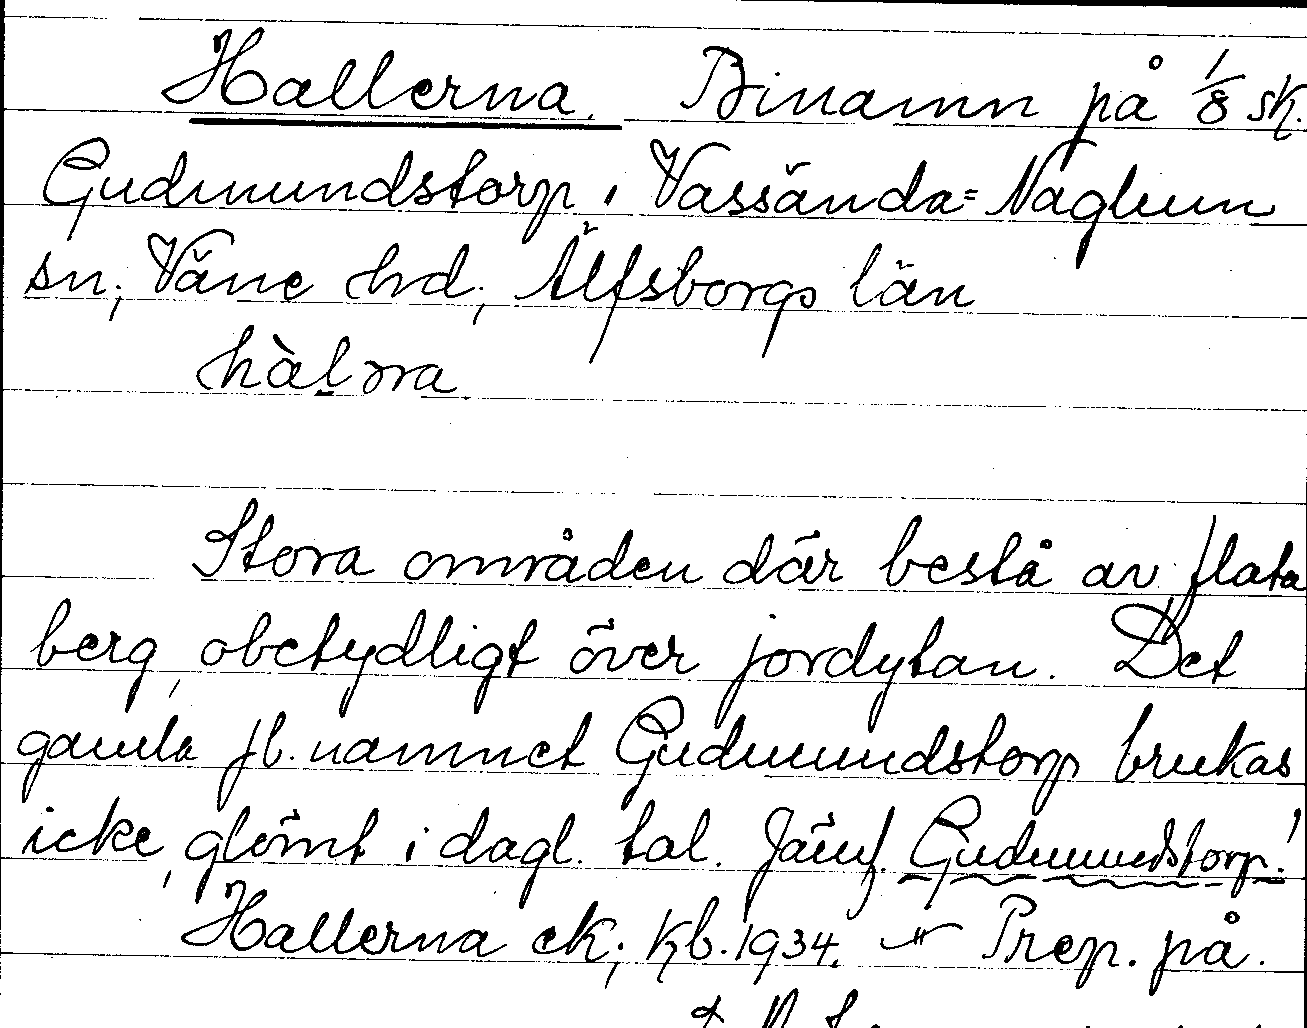 Hallerna. Binamn på 1/8 sk.
Gudmundstorp i Vassända=Naglum
sn; Väne hd; Älfsborgs län
hàl̲ɔra.
Stora områden där bestå av flata
berg, obetydligt över jordytan. Det
gamla jb.namnet Gudmundstorp brukas
icke, glömt i dagl. tal. Jämf. Gudmundstorp!
Hallerna ek; Kb. 1934. Prep. på.